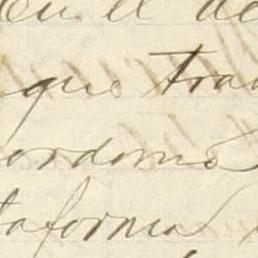 En el de
que tra
ordomo
taforma